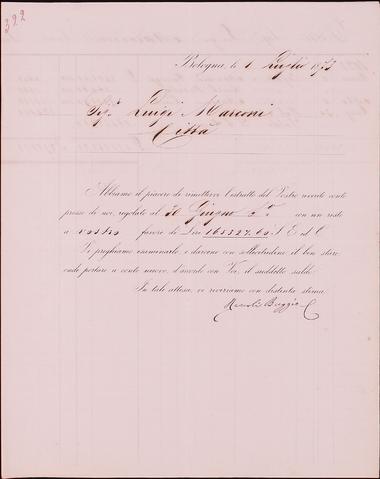 322
Bologna, li 1 Luglio 1873
Sigr. Luigi Marconi
Città
Abbiamo il piacere di rimettervi l'estratto del Vostro avuto conto
presso di noi, regolato al 30 Giugno con un resto
a vostro favore di Lire 165327.60 S. E. ed O.
Vi preghiamo esaminarlo e darcene con sollecitudine il ben stare
onde portare a conto nuovo, d'accordo con Voi, il suddetto saldo.
In tale attesa, vi riveriamo con distinta stima